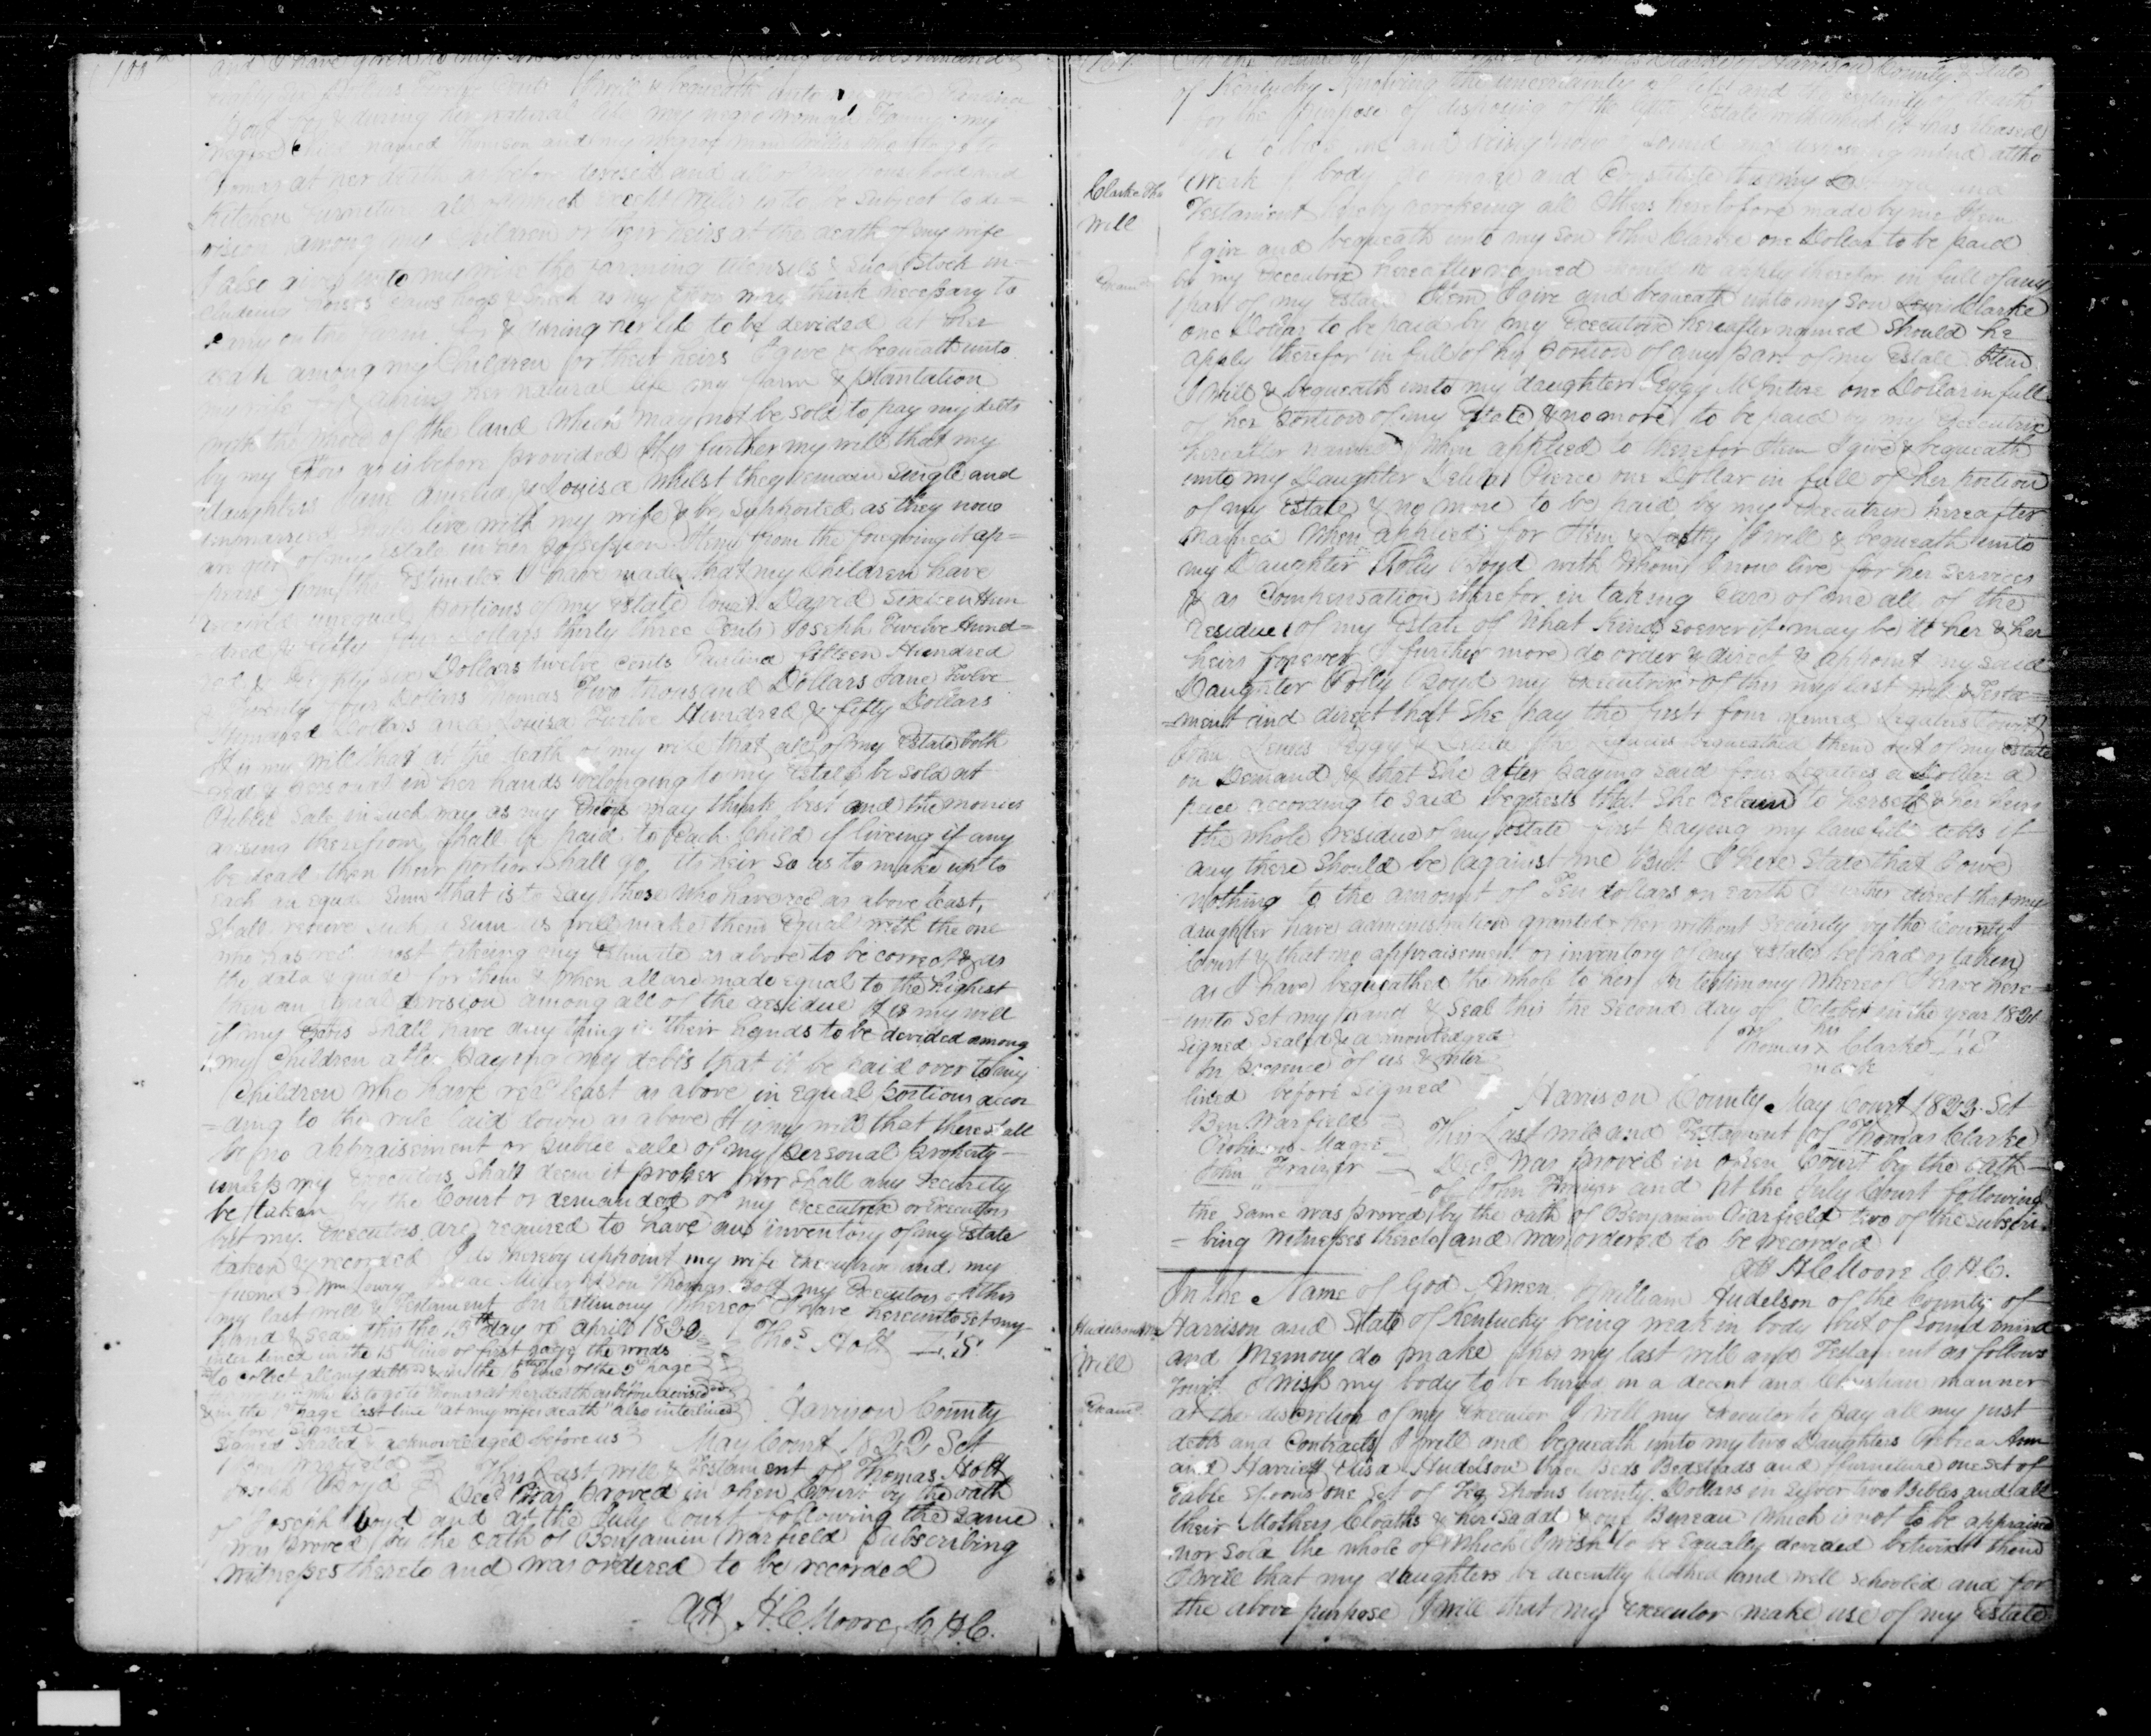 and I have given to my
I will & bequeath unto my wife
& during her natural life my negro woman Fanny my
negroe Child named Thomson and my negroe man
Thomas at her death as before devised and all of my household and
Kitchen Furniture all of which is to be Subject to di=
vision among my Children or their heirs at the death of my wife
I also give unto my wife the farming utensils & Such Stock in=
cluding horses Cows hogs & Such as my Exors may think necessary to
Carry on the farm for & during her life to be devided at her
death among my Children or their heirs I give & bequeath unto
my wife for & during her natural life my farm & plantation
with the whole of the land which may not be sold to pay my debts
by my Exors as is before provided It is further my will that my
daughters Jane Amelia & Louisa whilst they remain Single and
unmarried Shall live with my wife & be Supported as they now
are out of my Estate in her possession Item from the foregoing it ap=
pears from the Estimates I have made that my Children have
received unequal portions of my estate towit David Sixteen Hun
dred & fifty four Dollars thirty three Cents Joseph Twelve Hund=
red & Seventy Six Dollars twelve cents Paulina fifteen Hundred
& Twenty four Dollars Thomas Two thousand Dollars Jane Twelve
Hundred Dollars and Louisa Twelve Hundred & fifty Dollars
It is my will that at the death of my wife that all of my Estate both
real & personal in her hands belonging to my estate be sold at
Public Sale in such way as my Exors may think best and the monies
arising therefrom shall be paid to each Child if liveing if any
be dead then their portion shall go to their heir So as to make up to
each an equal Sum that is to Say those who have recd as above least,
Shall receive such a Sum as will make them Equal with the one
who has recd most taking my Estimate as above to be correct & as
the data & guide for them & when all are made equal to the highest
then an equal devision among all of the residue It is my will
if my Exors Shall have any thing in their hands to be devided among
my Children after paying my debts that it be paid over to my
Children who have recd least as above in equal portions accor
=ding to the rule laid down as above It is my will that there shall
be no appraisement or public sale of my personal property—
unless my Executors Shall deem it proper nor shall any Security
be taken by the Court or demanded of my executrix or Executors
but my Executors are required to have an inventory of my Estate
taken & recorded I do hereby appoint my wife Executrix and my
friends Wm Lowry Isaac Miller & Son Thomas Holt my Executors of this
my last will & Testament In testimony whereof I have hereunto set my
hand & Seal this the 13th day of April 1822
Thos Holt L.S.
inter lined in the 15th line of first page the words
"to collect all my debts" & in the 6th line of the 3d page
"who is to go to Thomas at her death as before devised"
& in the 1st page last line "at my wifes death" also interlined
before Signed—
Signed Sealed & acknowledged before us
Ben Warfield
Joseph Boyd
Harrison County
May Court 1822 Sct
This Last will & Testament of Thomas Holt
Decd was proved in open Court by the oath
of Joseph Boyd and at the July Court following the Same
was proved by the oath of Benjamin Warfield Subscribing
witnesses thereto and was ordered to be recorded
Att H.C. Moore C.H.C.
Harrison County & State
of Kentucky Knowing the uncertainty of life and the certainty of death
for the purpose of disposing of the Estate which it has pleased
and being now of Sound and disposing mind altho
Clarke Tho
Will
weak of body do make and Constitute this my Last will and
Testament hereby revokeing all others heretofore made by me Item
I give and bequeath unto my son John Clarke one Dollar to be paid
Exam
by my executrix hereafter named should he apply therefor in full of any
part of my Estate Item I give and bequeath unto my son Lewis Clarke
one Dollar to be paid by my Executrix hereafter named Should he
apply therefor in full of his portion of any part of my Estate Item
I will & bequeath unto my daughter Peggy McIntire one Dollar in full
of her portion of my Estate & no more to be paid by my Executrix
hereafter named When applied to therefor Item I give & bequeath
unto my Daughter Delila Pierce one Dollar in full of her portion
of my Estate & no more to be paid by my Executrix hereafter
named When applied for Item & Lastly I will & bequeath unto
my Daughter Polly Boyd with whom I now live for her services
& as Compensation therefor in taking care of me all of the
residue of my Estate of what kind soever it may be to her & her
heirs forever I further more do order & direct & appoint my said
Daughter Polly Boyd my executrix of this my last will & Testa=
=ment and direct that She pay the first four named Legatees Towit
John Lewis Peggy & Delila the Legacies bequeathed them out of my estate
on Demand & that She after paying said four Legatees a Dollar a
piece according to said bequests that She retain to herself & her heirs
the whole residue of my estate first paying my lawfull debts if
any there should be against me But I here State that I owe
nothing to the amount of Ten dollars on earth I further direct that my
daughter have administration granted her without security by the County
Court & that no appraisement or inventory of my estate be had or taken
as I have bequeathed the whole to her In testimony whereof I have here=
unto set my hand & Seal this the Second day of October in the year 1821
Signed Sealed & acknowledged
In presence of us & inter
lined before signed
his
Thomas x Clarke L.S.
mark
Ben Warfield
Magee
John Frazier
Harrison County May Court 1822 Sct
This Last will and Testament of Thomas Clarke
Decd was proved in open Court by the oath—
of John Frazier and at the July Court following
the same was proved by the oath of Benjamin Warfield two of the subscri=
=bing witnesses thereto and was ordered to be recorded
Att H.C. Moore C.H.C.
In the Name of God Amen I William Hudelson of the County of
Will
Harrison and State of Kentucky being weak in body but of Sound mind
and Memory do make this my last will and Testament as follows
Exam
Towit I wish my body to be buryed in a decent and Christian manner
at the discretion of my executor I will my executor to pay all my just
debts and Contracts I will and bequeath unto my two Daughters Ann
and Harriett Elisa Hudelson three Beds Bedsteads and furneture one set of
Table Spoons one Set of Tea Spoons twenty Dollars in Silver two Bibles and all
their Mothers Cloaths & her Saddle & one Bureau which is not to be appraised
nor sold the whole of which I wish to be equally devided betwixt them
I will that my daughters be decently clothed and well schooled and for
the above purpose I will that my executor make use of my Estate